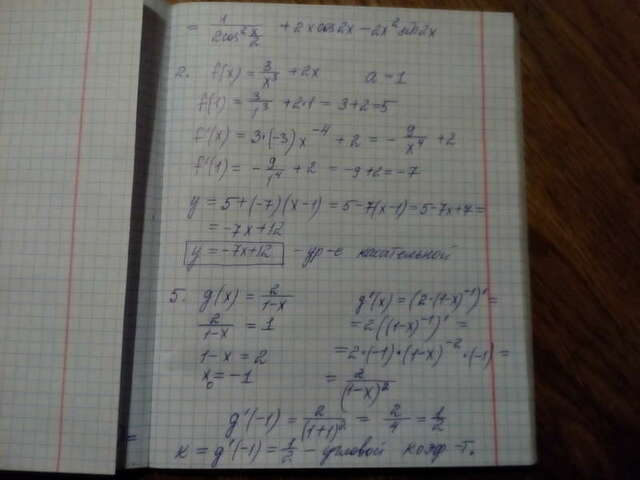 = 1/(2cos² x/2) + 2x cos 2x − 2x² sin 2x
2. f(x) = 3/x³ + 2x a = 1
f(1) = 3/1³ + 2·1 = 3+2=5
f'(x) = 3·(-3)x⁻⁴ + 2 = - 9/x⁴ + 2
f'(1) = - 9/1⁴ + 2 = -9+2=-7
y = 5+(-7)(x-1) = 5-7(x-1)=5-7x+7=
= -7x+12
y = -7x+12 - ур-е касательной
5. g(x) = 2/(1-x) g'(x) = (2·(1-x)⁻¹)' =
2/(1-x) = 1 = 2((1-x)⁻¹)' =
1-x = 2 = 2·(-1)·(1-x)⁻²·(-1) =
x₀ = -1 = 2/(1-x)²
g'(-1) = 2/(1+1)² = 2/4 = 1/2
к = g'(-1) = 1/2 - угловой коэф-т.